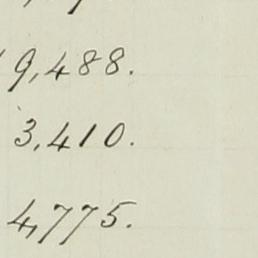 9,488.
3,410.
4,775.